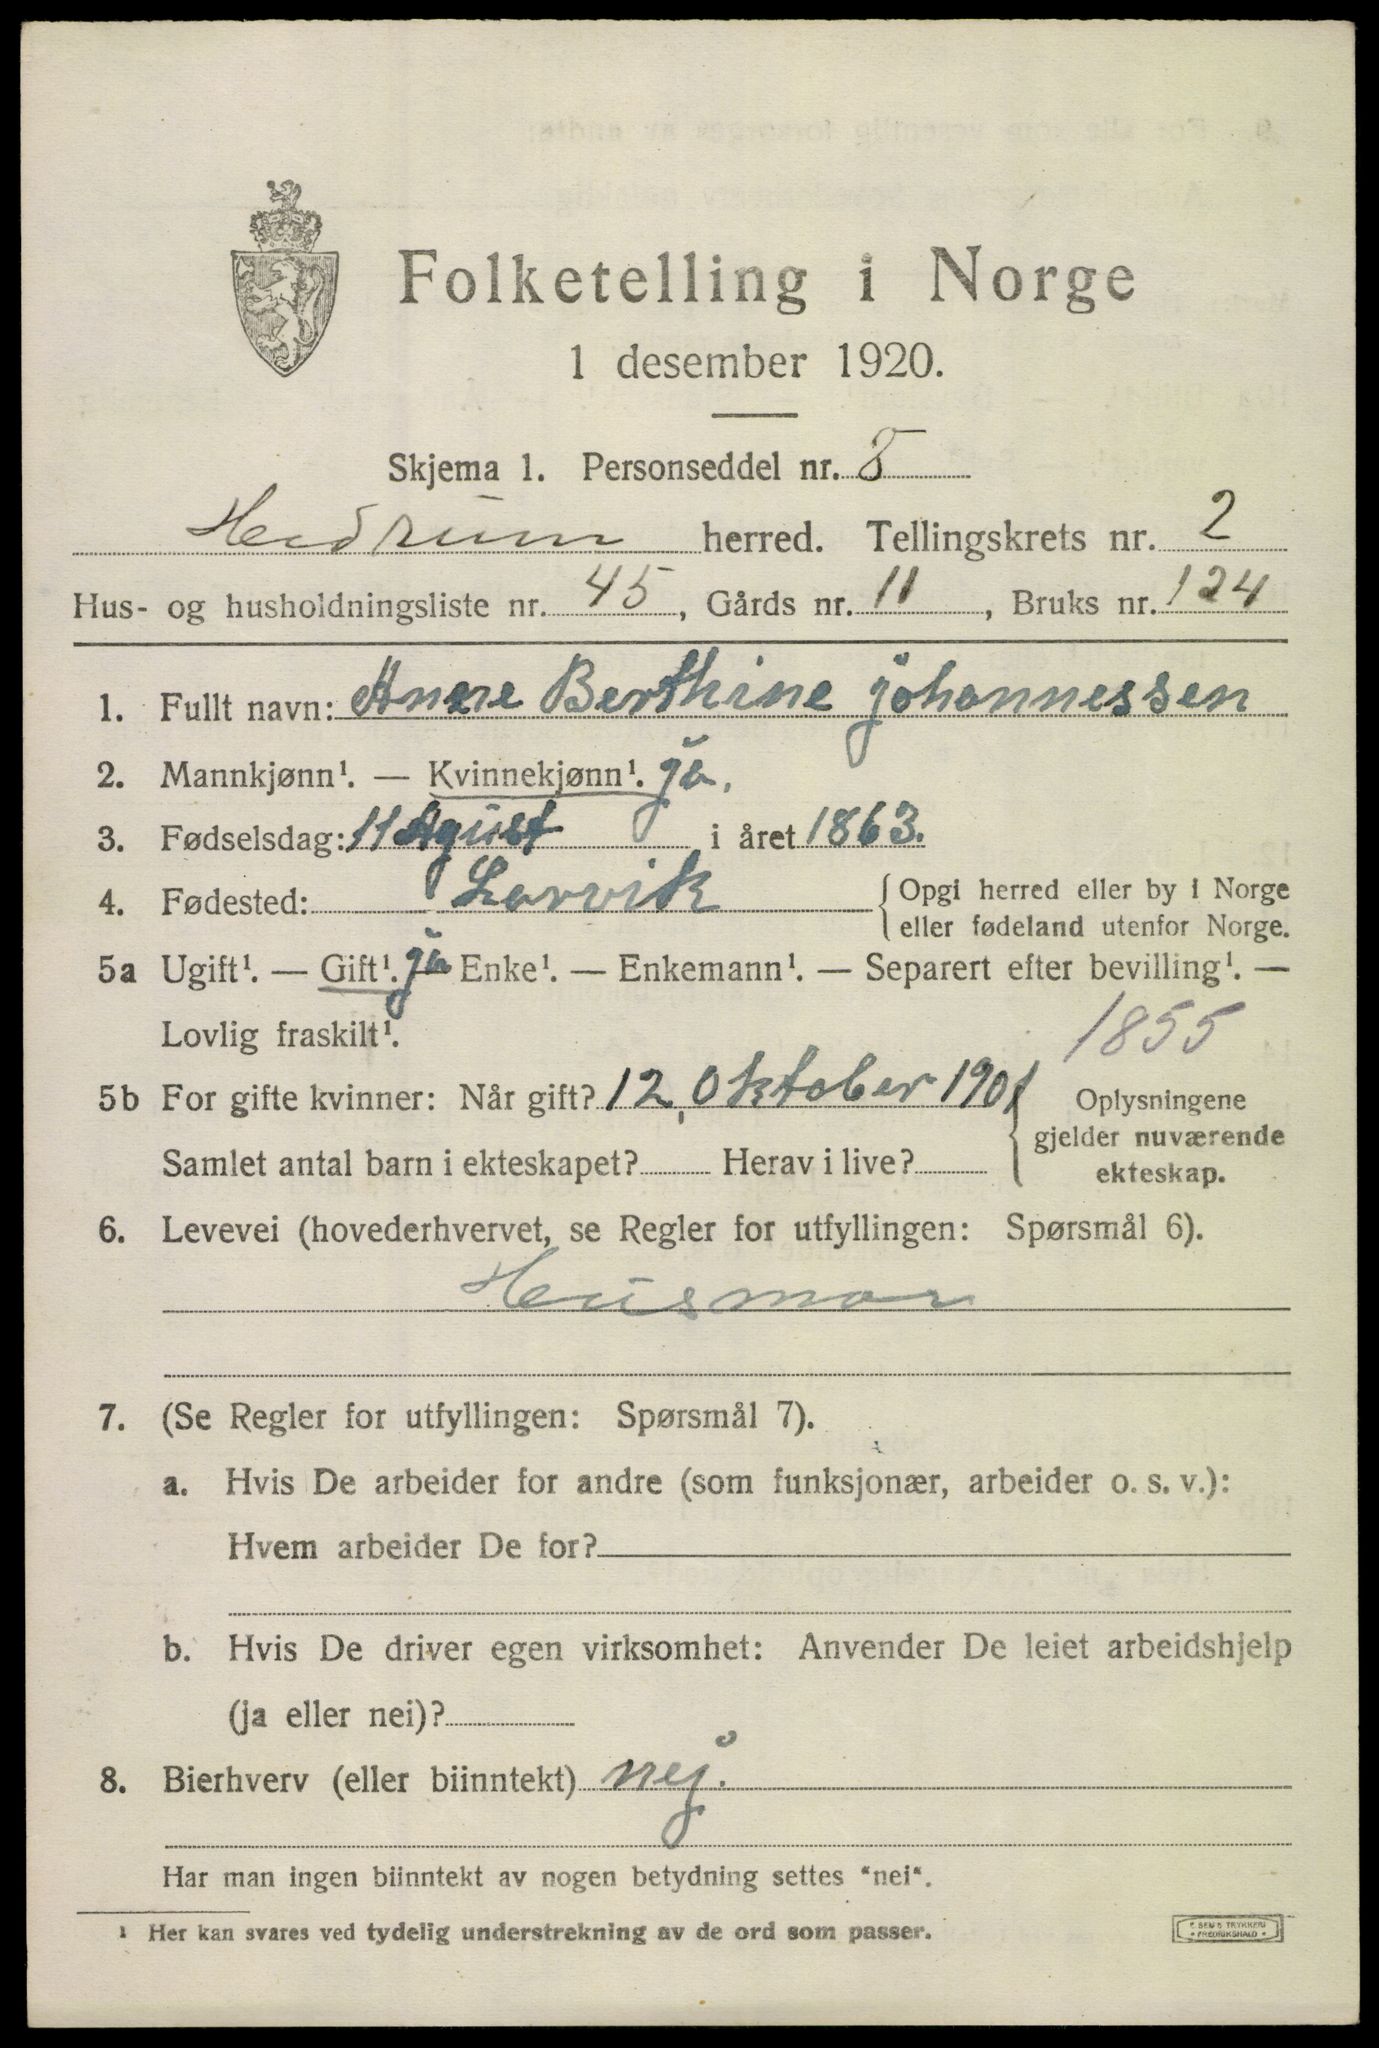 Folketelling i Norge
1 desember 1920.
Skjema 1. Personseddel nr. 8
Hedrum herred. Tellingskrets nr. 2
Hus- og husholdningsliste nr. 45, Gårds nr. 11, Bruks nr. 124
1. Fullt navn: Anne Berthine Johannessen
2. Mannkjønn¹. — Kvinnekjønn¹. ja.
3. Fødselsdag: 11 Agust i året 1863.
4. Fødested: Larvik { Opgi herred eller by i Norge
eller fødeland utenfor Norge.
5a Ugift¹. — Gift¹. ja Enke¹. — Enkemann¹. — Separert efter bevilling¹. —
Lovlig fraskilt¹. 1855
5b For gifte kvinner: Når gift? 12, Oktober 1901 { Oplysningene
gjelder nuværende
Samlet antal barn i ekteskapet? Herav i live?
ekteskap.
6. Levevei (hovederhvervet, se Regler for utfyllingen: Spørsmål 6).
Husmor
7. (Se Regler for utfyllingen: Spørsmål 7).
a. Hvis De arbeider for andre (som funksjonær, arbeider o. s. v.):
Hvem arbeider De for?
b. Hvis De driver egen virksomhet: Anvender De leiet arbeidshjelp
(ja eller nei)?
8. Bierhverv (eller biinntekt) nej.
Har man ingen biinntekt av nogen betydning settes "nei".
¹ Her kan svares ved tydelig understrekning av de ord som passer.
E. SEM'S TRYKKERI
* FREDRIKSHALD *